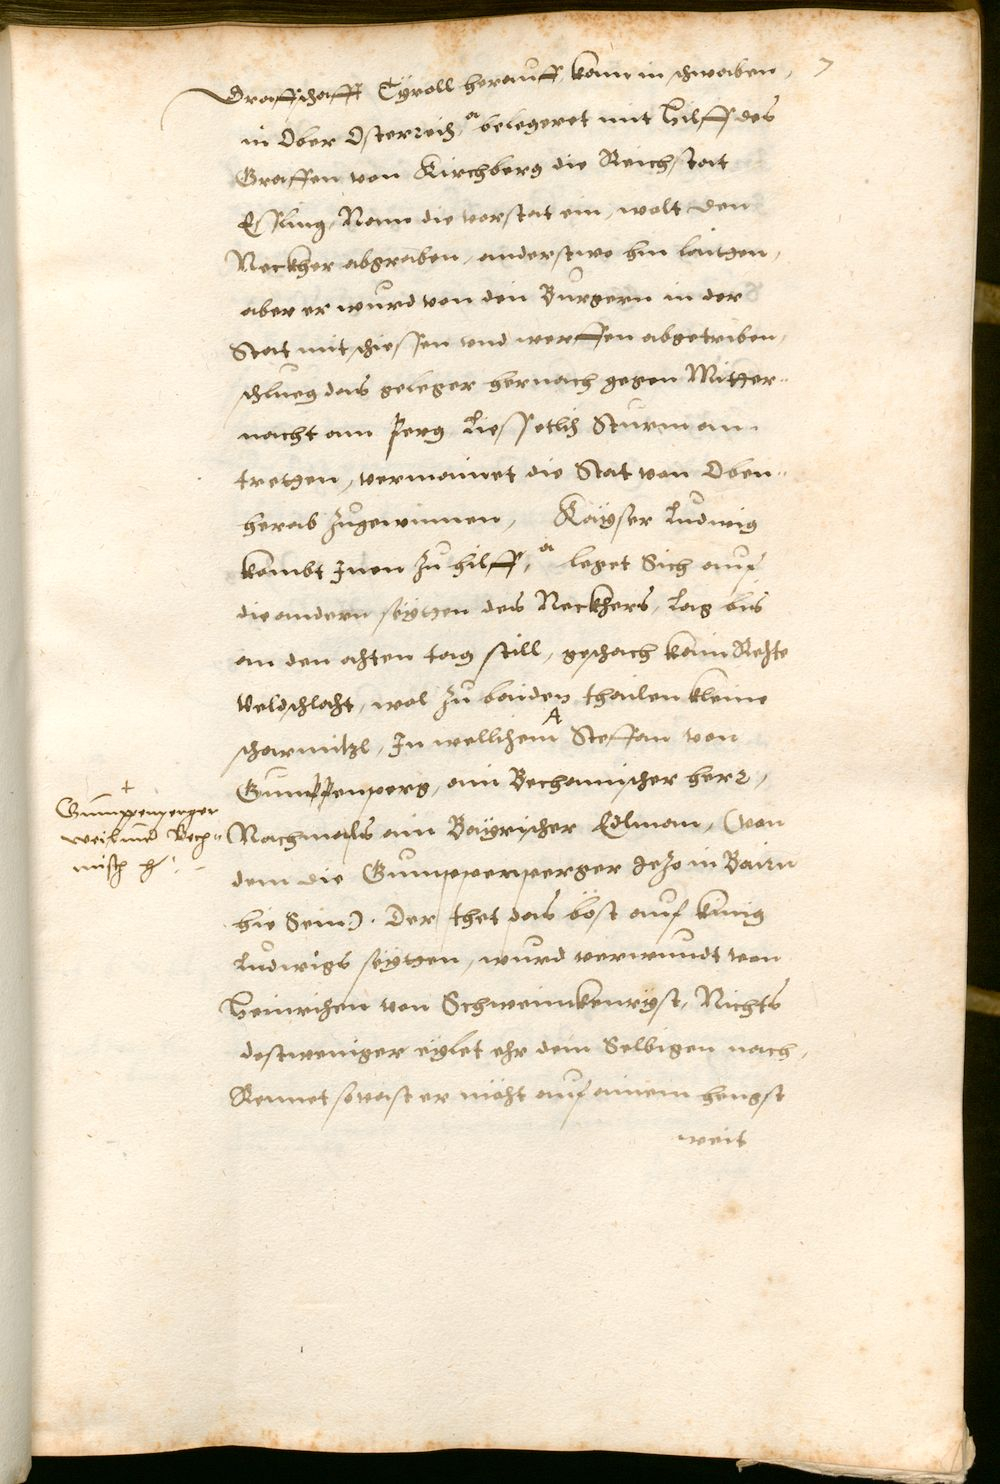 7
Graffschafft Tÿroll herauff, kam in schwaben,
in Ober Osterreich, a belegeret mit Hilff des
Graffen von Kirchberg die Reichstat
Essling, Nam die vorstat ein, wolt den
Neckher abgraben, anderstwo hin laitgen,
aber er wurd von den Burgern in der
Stat mit schiessen vnd werffen abgetriben,
schlueg das geleger hernach gegen Mitter-
nacht am perg Liess etlich Sturm an
tretgen, vermainet die Stat von Oben-
herab zugewinnen, Kaÿser Ludwig
kombt Inen zu hilff, a leget Sich auf
die andern seÿtgen des Neckhers, lag bis
an den achten tag still, geschach kain Rechte
Veldschlacht, wol zu baiden thailen kleine
scharmitzl, In wellichem A Steffan von
Gumppenperg, ain Bechamischer herr,
Nachmals ain Bayrischer Edlman, (von
dem die Gumppenperger Iezo in Bairn
hie Sein). Der thet das böst auf kunig
Ludwigs seÿtgen, wurd verwundt von
Heinrichen von Schweinnkenryst, Nichts
destweniger eylet ehr dem Selbigen nach,
Rennet sovast er möcht auf ainem hengst
weit
+
Gumppenperger
weilund Bech-
misch h: